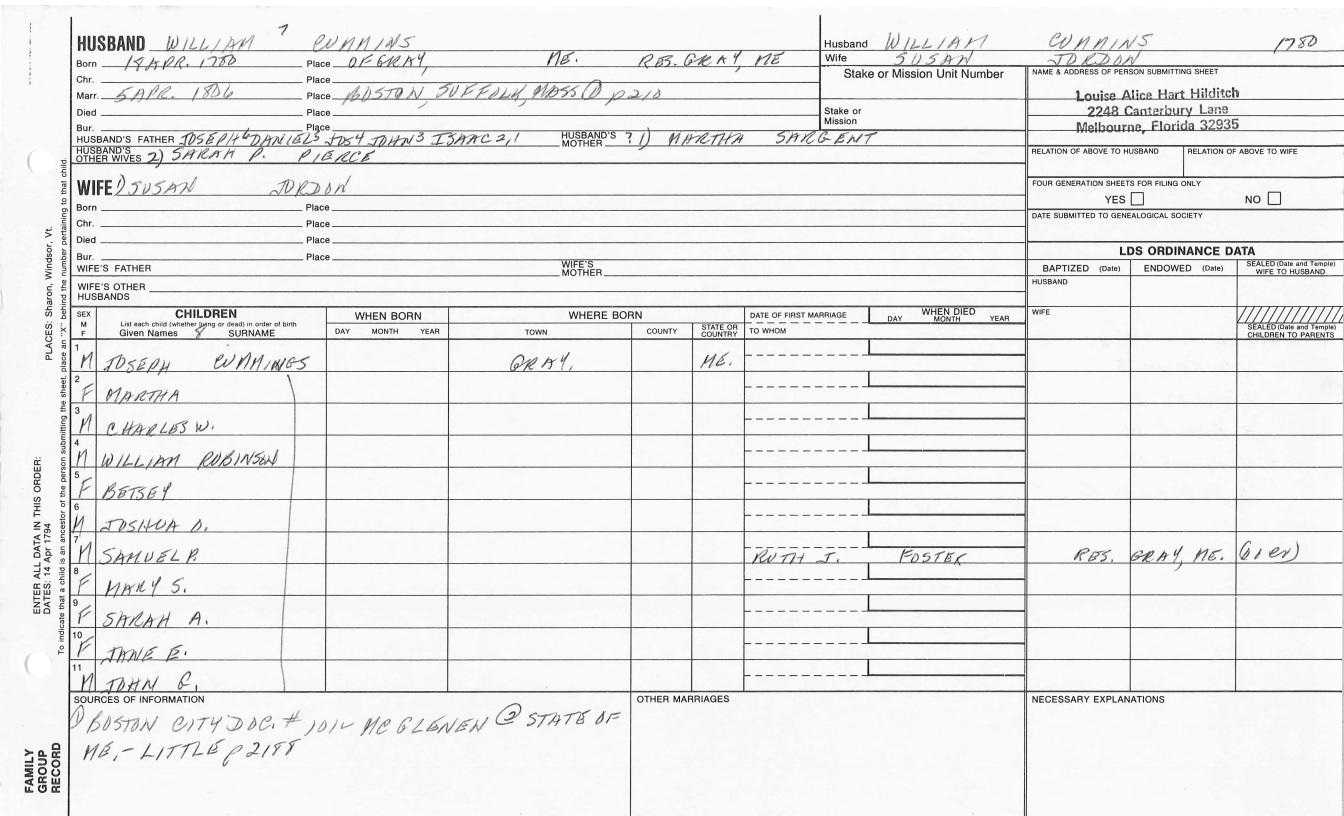 HUSBAND WILLIAM 7 CUMMINS
Born 18 APR. 1780 Place OF GRAY, ME. RES. GRAY, ME
Chr. Place
Marr. 5 APR. 1806 Place BOSTON, SUFFOLK, MASS ① p210
Died Place
Bur. Place
HUSBAND'S FATHER JOSEPH 6 DANIEL 5 JOS 4 JOHN 3 ISAAC 2,1 HUSBAND'S MOTHER ? 1) MARTHA SARGENT
HUSBAND'S OTHER WIVES 2) SARAH P. PIERCE
WIFE 1) SUSAN JORDON
Born Place
Chr. Place
Died Place
Bur. Place
WIFE'S FATHER WIFE'S MOTHER
WIFE'S OTHER HUSBANDS
Husband WILLIAM CUMMINS 1780
Wife SUSAN JORDON
Stake or Mission Unit Number
Stake or Mission
NAME & ADDRESS OF PERSON SUBMITTING SHEET
Louise Alice Hart Hilditch
2248 Canterbury Lane
Melbourne, Florida 32935
RELATION OF ABOVE TO HUSBAND RELATION OF ABOVE TO WIFE
FOUR GENERATION SHEETS FOR FILING ONLY
YES NO
DATE SUBMITTED TO GENEALOGICAL SOCIETY
LDS ORDINANCE DATA
BAPTIZED (Date) ENDOWED (Date) SEALED (Date and Temple) WIFE TO HUSBAND
HUSBAND
WIFE
SEALED (Date and Temple) CHILDREN TO PARENTS
SEX M F
CHILDREN
List each child (whether living or dead) in order of birth
Given Names 8 SURNAME
WHEN BORN
DAY MONTH YEAR
WHERE BORN
TOWN COUNTY STATE OR COUNTRY
DATE OF FIRST MARRIAGE
TO WHOM
WHEN DIED
DAY MONTH YEAR
1 M JOSEPH CUMMINGS GRAY, ME.
2 F MARTHA
3 M CHARLES W.
4 M WILLIAM ROBINSON
5 F BETSEY
6 M JOSHUA D.
7 M SAMUEL P. RUTH J. FOSTER RES. GRAY, ME.
8 F MARY S.
9 F SARAH A.
10 F JANE E.
11 M JOHN
SOURCES OF INFORMATION
① BOSTON CITY DOC. # 101- MCGLENEN ② STATE OF
ME,- LITTLE p2188
OTHER MARRIAGES
NECESSARY EXPLANATIONS
PLACES: Sharon, Windsor, Vt.
ENTER ALL DATA IN THIS ORDER:
DATES: 14 Apr 1794
To indicate that a child is an ancestor of the person submitting the sheet, place an "X" behind the number pertaining to that child.
FAMILY
GROUP
RECORD